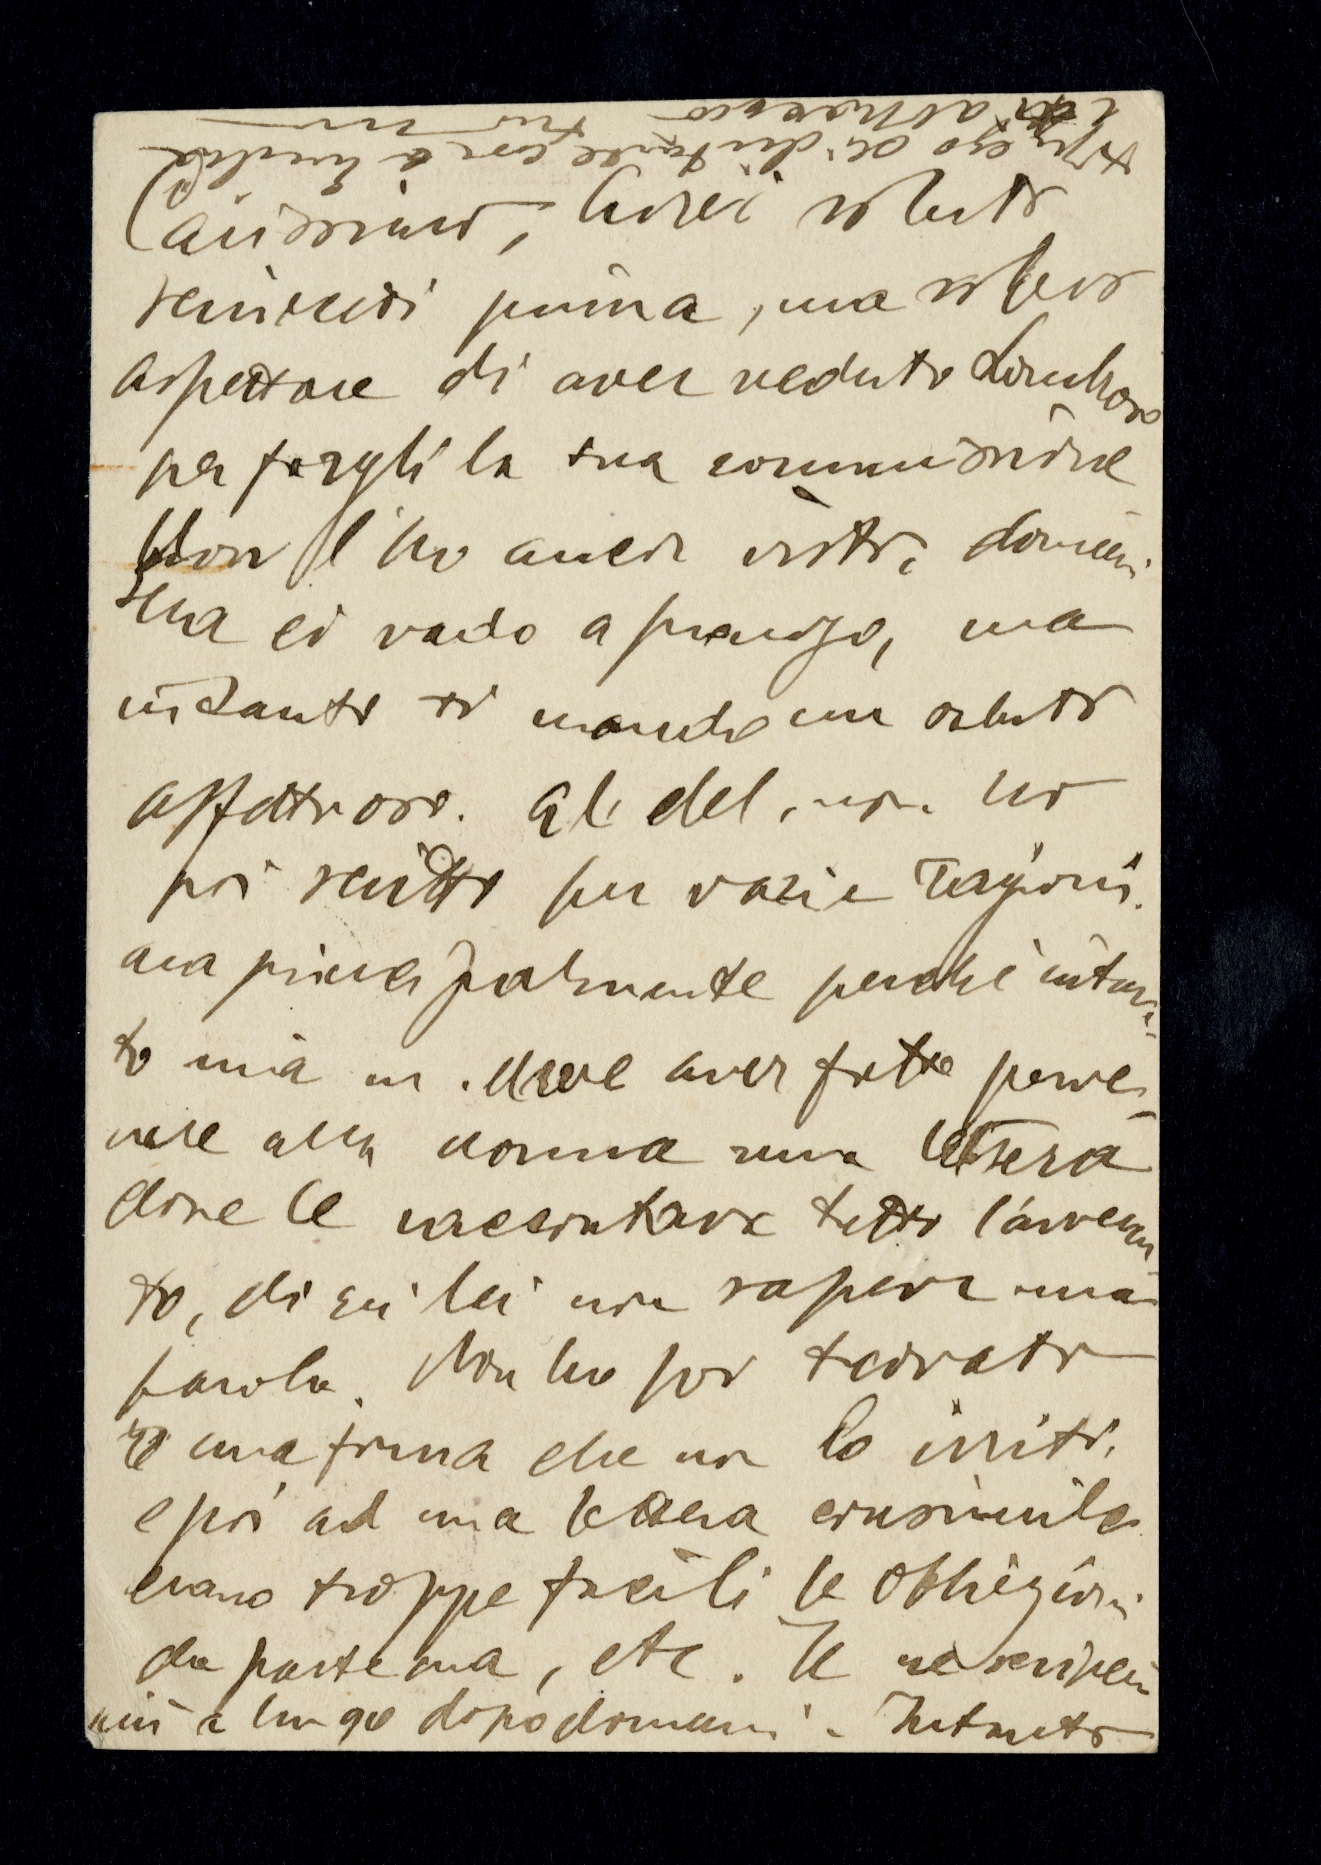 Carissimo, Avrei voluto
scriverti prima, ma volevo
aspettare di aver veduto Lombroso
per fargli la tua commissione
Non l'ho ancor visto, domani
sera ci vado a pranzo, ma
intanto ti mando un saluto
affettuoso. Al del. non ho
poi scritto per varie ragioni.
ma principalmente perchè intan-
to mia m. deve aver fatto perve-
nire alla nonna una lettera
dove le raccontava tutto l'avvenu
to, di cui lei non sapeva una
parola. Non ho poi trovato
una forma che non lo irriti,
e poi ad una lettera consimile
erano troppo facili le obbiezioni
da parte sua, etc. Te ne scriverò
più a lungo dopodomani. Intanto
ti prego di salutare con la
un abbraccio tuo